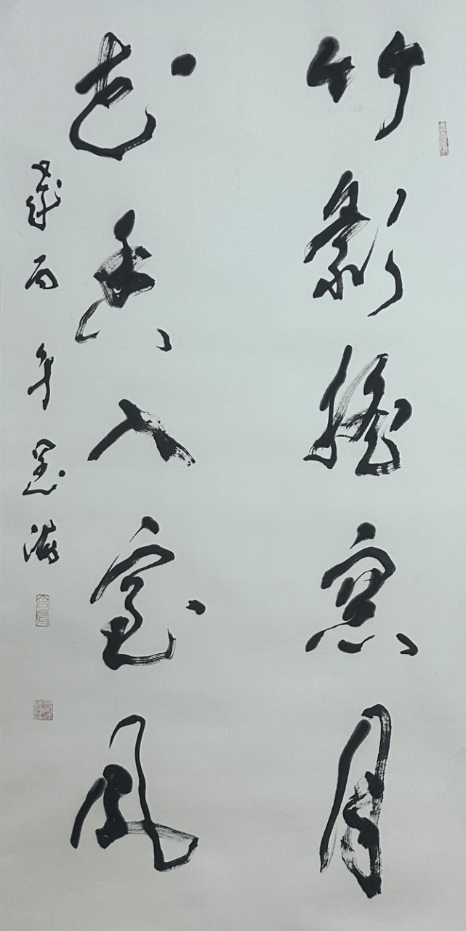 竹影搖窓月
花香入室風
歲丙午墨海